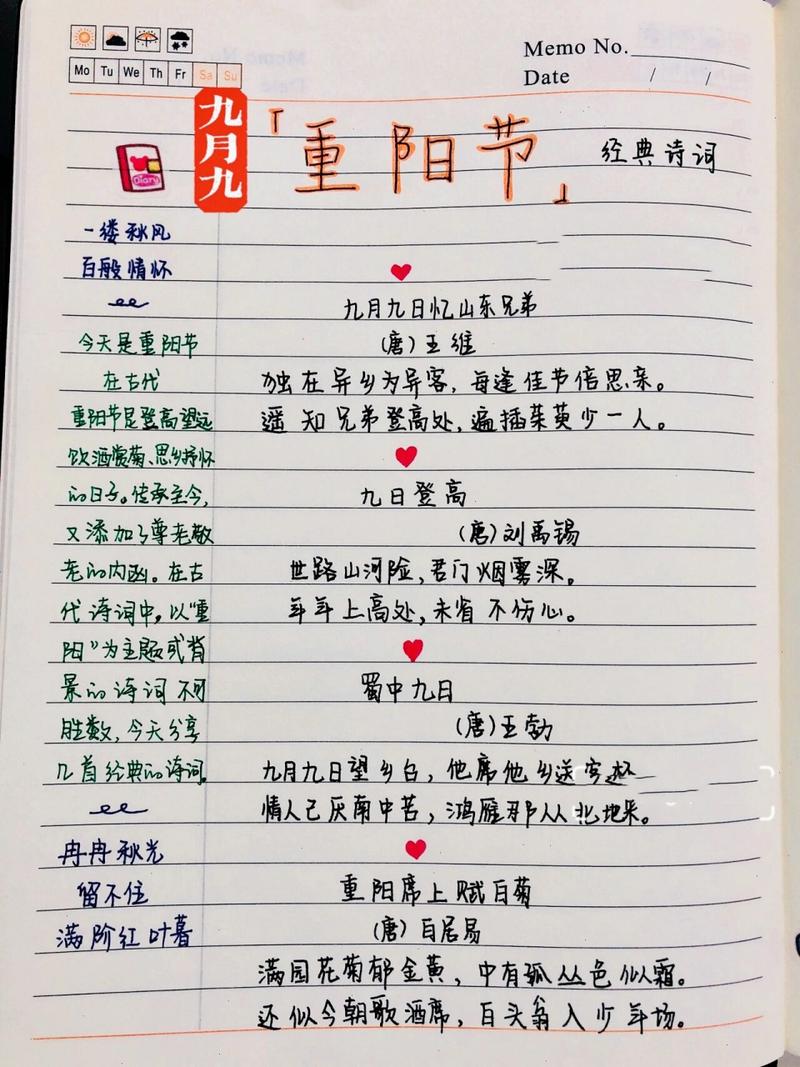 Memo No.
Date / /
Mo Tu We Th Fr Sa Su
九月九
「重阳节」
经典诗词
Diary
一缕秋风
百般情怀
今天是重阳节
在古代
重阳节是登高望远
饮酒赏菊、思乡抒怀
的日子。传承至今,
又添加了尊老敬
老的内涵。在古
代诗词中,以“重
阳”为主题或背
景的诗词不可
胜数,今天分享
几首经典的诗词
冉冉秋光
留不住
满阶红叶暮
九月九日忆山东兄弟
(唐)王维
独在异乡为异客,每逢佳节倍思亲。
遥知兄弟登高处,遍插茱萸少一人。
九日登高
(唐)刘禹锡
世路山河险,君门烟雾深。
年年上高处,未省不伤心。
蜀中九日
(唐)王勃
九月九日望乡台,他席他乡送客杯
情人已厌南中苦,鸿雁那从北地来。
重阳席上赋白菊
(唐)白居易
满园花菊郁金黄,中有孤丛色似霜。
还似今朝歌酒席,白头翁入少年场。